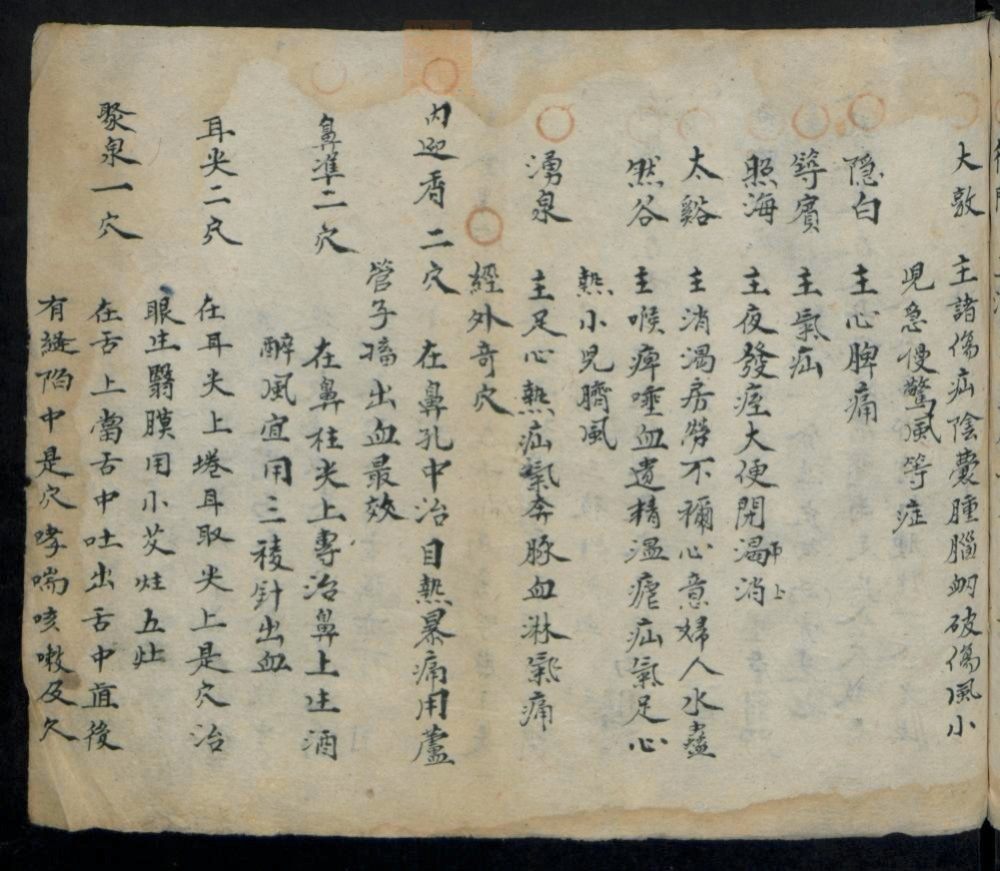 大敦 主諸傷疝陰囊腫腦衂破傷風小
兒急慢驚風等症
隐白 主心脾痛
築賓 主氣疝
照海 主夜發痙大便閉濁消 帀上
太谿 主消濁房勞不禰心意婦人水蠱
然谷 主喉痺唾血遺精温瘧疝氣足心
熱小児臍風
湧泉 主足心熱疝氣奔豚血淋氣痛
經外竒穴
内迎香二穴 在鼻孔中治目熱暴痛用蘆
管子搐出血最效
鼻準二穴 在鼻柱尖上專治鼻上生酒
醉風宜用三稜針出血
耳尖二穴 在耳尖上捲耳取尖上是穴治
眼生翳膜用小艾炷五炷
聚泉一穴 在舌上當舌中吐出舌中直後
有縫陷中是穴哮喘咳嗽及久